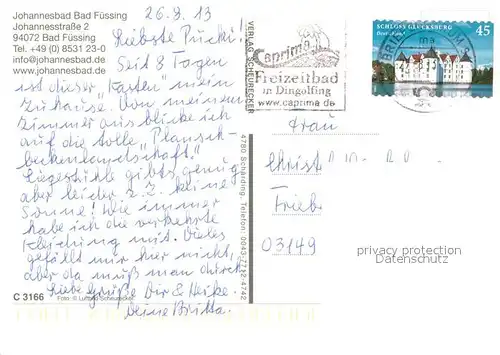 Johannesbad Bad Füssing
Johannesstraße 2
94072 Bad Füssing
Tel. +49 (0) 8531 23-0
info@johannesbad.de
www.johannesbad.de
26.8.13
Liebste Pucki!
Seit 8 Tagen
ist dieser "Kasten" mein
zuhause. Von meinem
Zimmer aus blicke ich
auf die tolle "Plansch-
beckenlandschaft".
Liegestühle gibts genug
aber leider z.Z. keine
Sonne! Wie immer
habe ich die verkehrte
Kleidung mit. Vieles
gefällt mir hier nicht,
aber da muß man durch
Liebe Grüße Dir & Heike.
Deine Britta.
C 3166
Foto: © Luftbild Scheurecker
VERLAG SCHEURECKER
4780 Schärding, Telefon: 0043-7712-4742
Caprima
Freizeitbad
in Dingolfing
www.caprima.de
SCHLOSS GLÜCKSBURG
Deutschland
45
BRIEF
Frau
Christ
Frieb
03149
privacy protection
Datenschutz